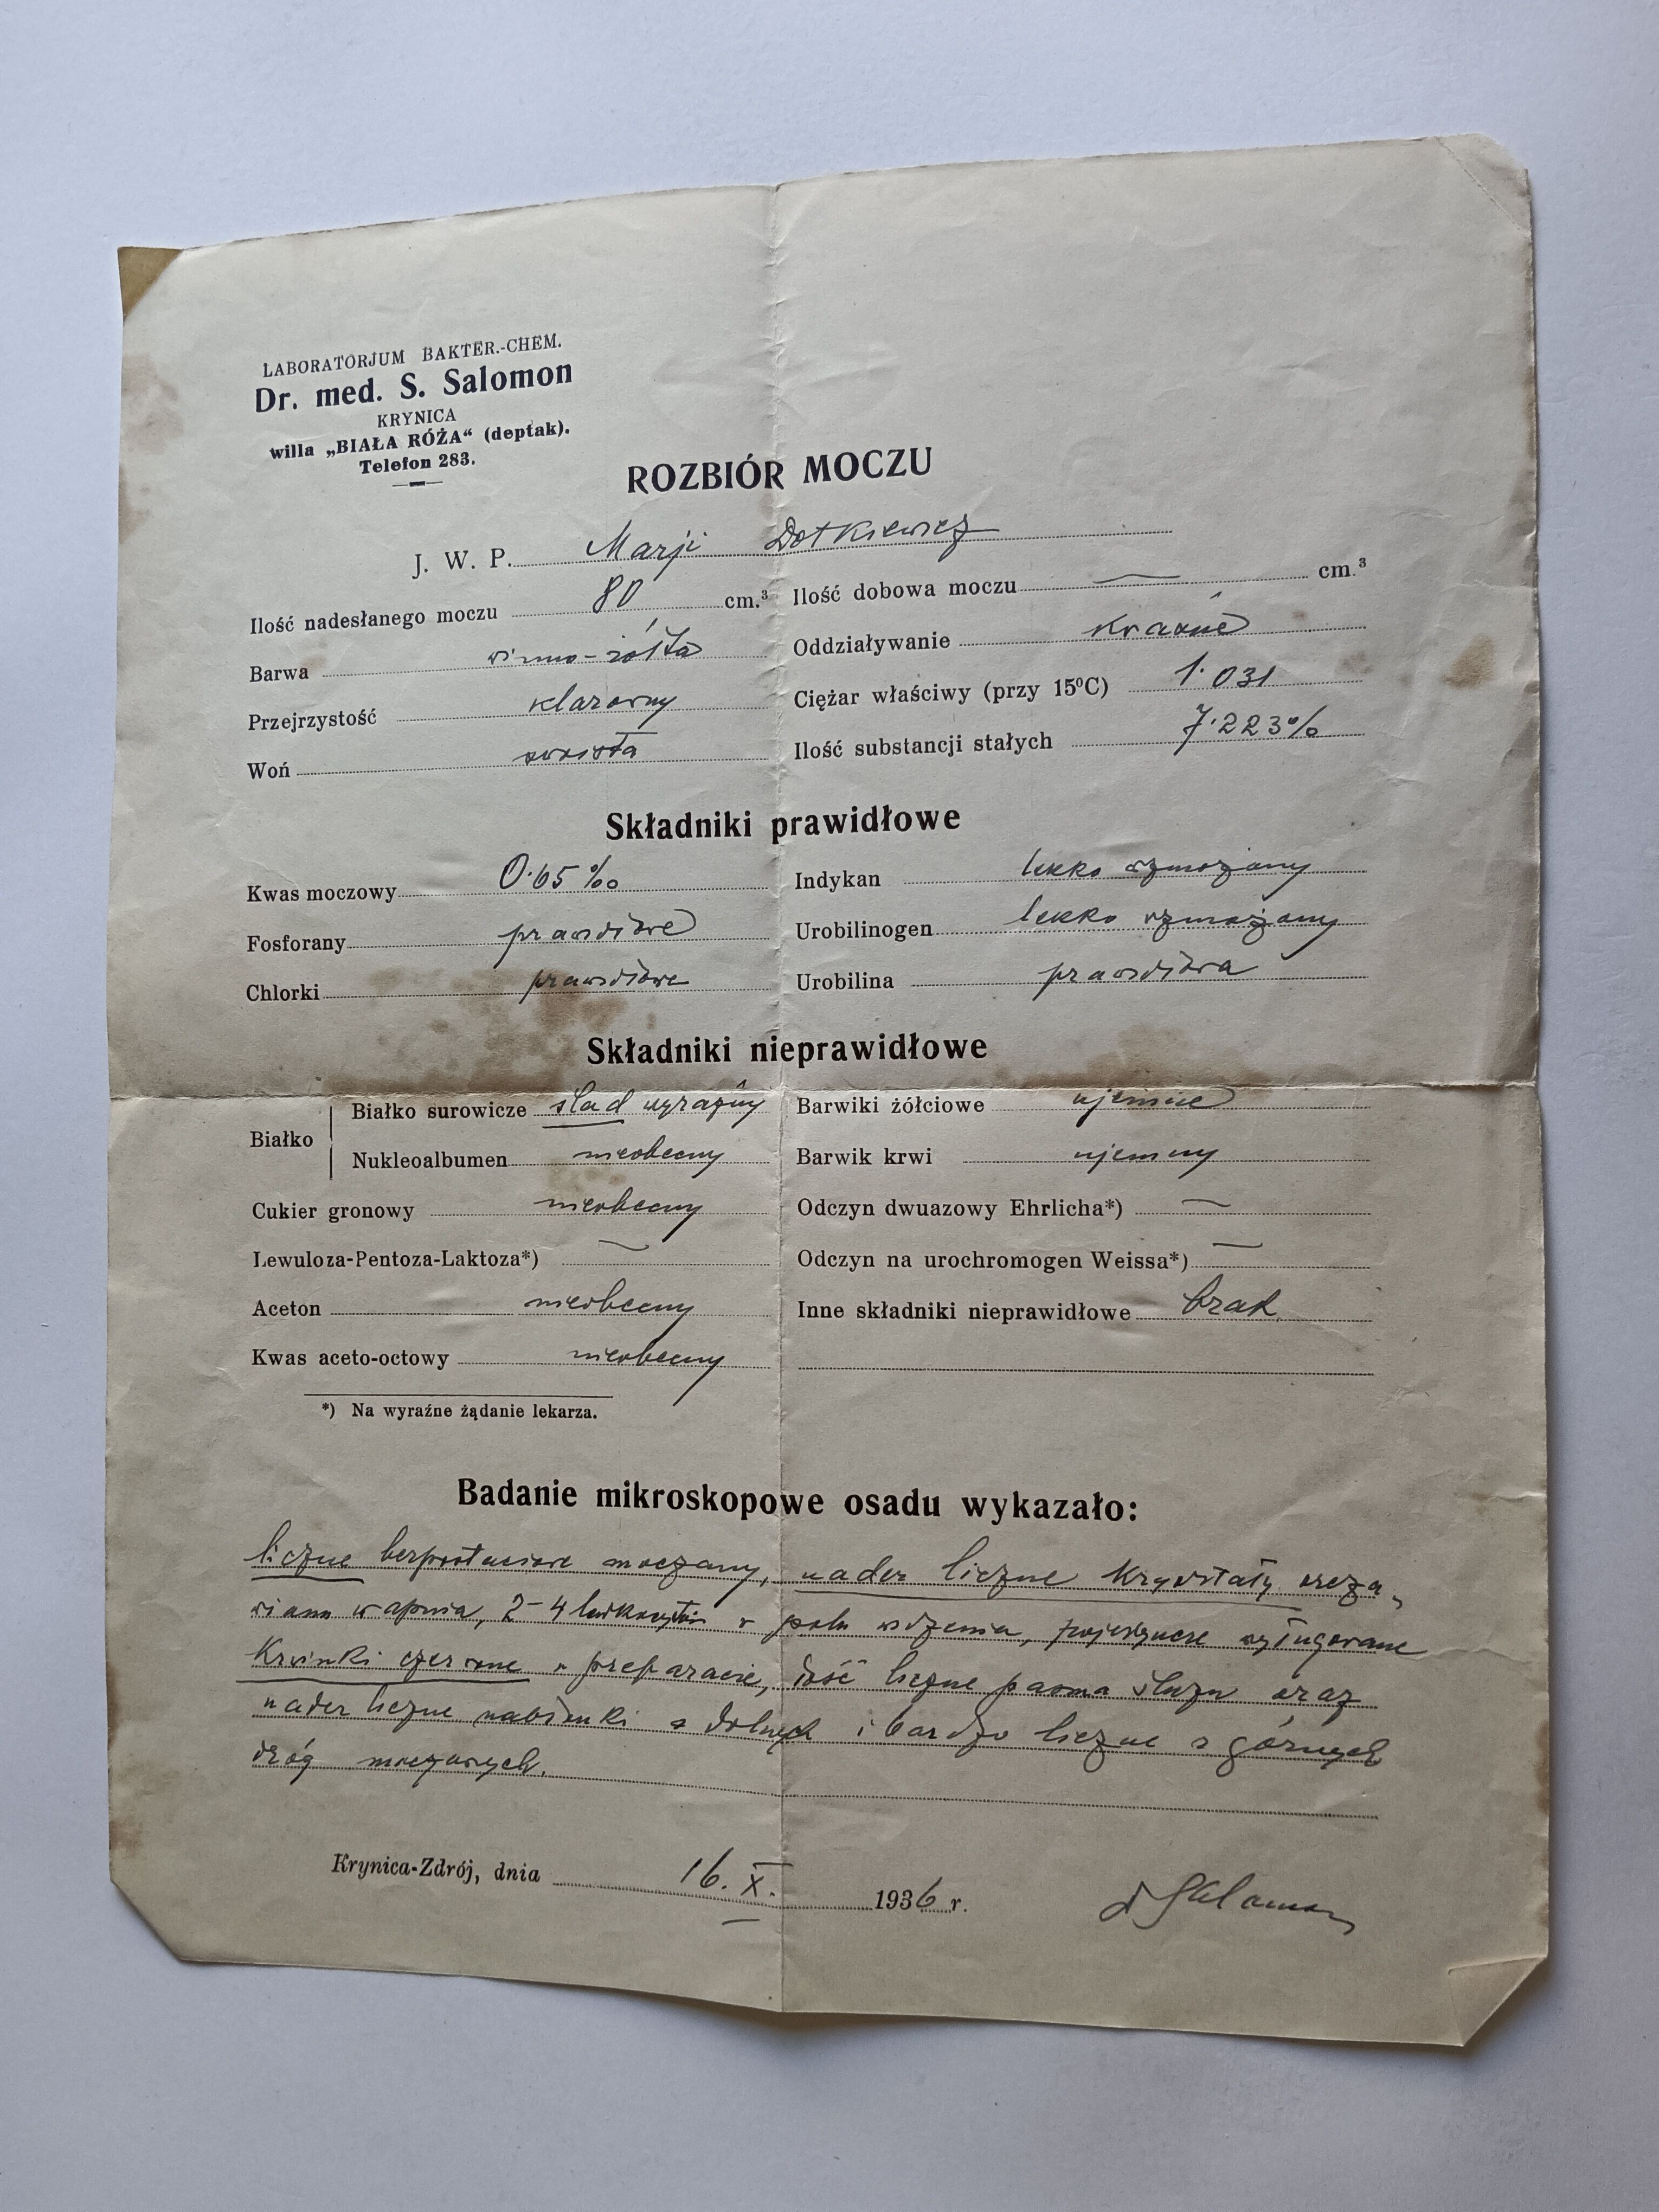 LABORATORJUM BAKTER.-CHEM.
Dr. med. S. Salomon
KRYNICA
willa „BIAŁA RÓŻA“ (deptak).
Telefon 283.
ROZBIÓR MOCZU
J. W. P. Marji Dotkiewicz
Ilość nadesłanego moczu 80 cm.³ Ilość dobowa moczu — cm.³
Barwa winno-żółta Oddziaływanie kwaśne
Przejrzystość klarowny Ciężar właściwy (przy 15⁰C) 1·031
Woń swoista Ilość substancji stałych 7·223%
Składniki prawidłowe
Kwas moczowy 0·65‰ Indykan lekko wzmożony
Fosforany prawidłowe Urobilinogen lekko wzmożony
Chlorki prawidłowe Urobilina prawidłowa
Składniki nieprawidłowe
Białko Białko surowicze ślad wyraźny Barwiki żółciowe ujemne
Nukleoalbumen nieobecny Barwik krwi ujemny
Cukier gronowy nieobecny Odczyn dwuazowy Ehrlicha*) —
Lewuloza-Pentoza-Laktoza*) — Odczyn na urochromogen Weissa*) —
Aceton nieobecny Inne składniki nieprawidłowe brak.
Kwas aceto-octowy nieobecny
*) Na wyraźne żądanie lekarza.
Badanie mikroskopowe osadu wykazało:
liczne bezpostaciowe moczany, nader liczne kryształy szcza-
wianu wapnia, 2-4 leukocytów w polu widzenia, pojedyncze wyługowane
krwinki czerwone w preparacie, dość liczne pasma śluzu oraz
nader liczne nabłonki z dolnych i bardzo liczne z górnych
dróg moczowych.
Krynica-Zdrój, dnia 16. X. 1936 r. Dr Salomon